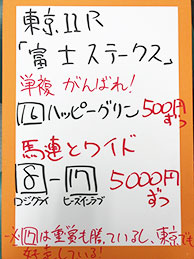 東京11R
「富士ステークス」
単複 がんばれ！
16 ハッピーグリン 500円
ずつ
馬連とワイド
8 - 17 5000円
ロジクライ ヒーズインラブ ずつ
は重賞も勝っているし、東京でも